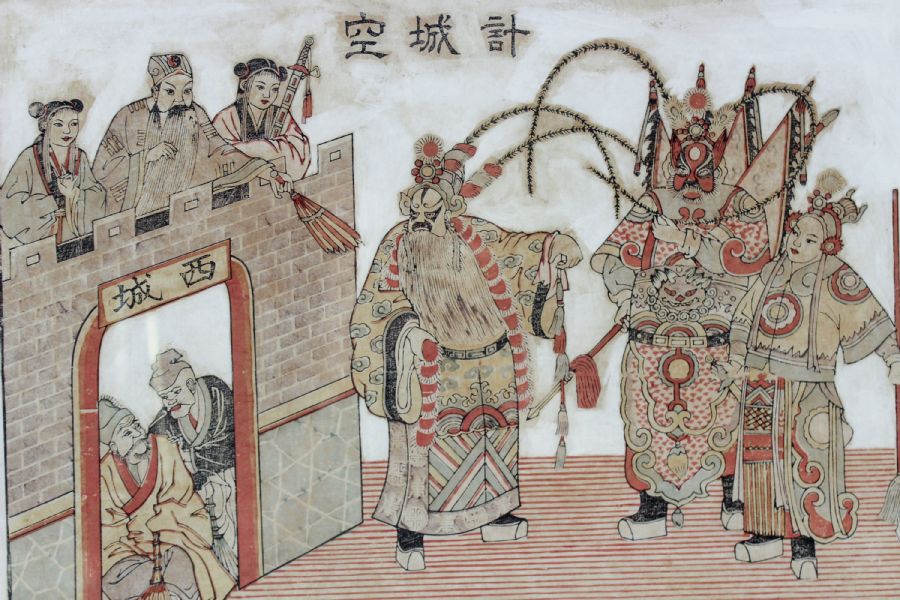 空城計
西城